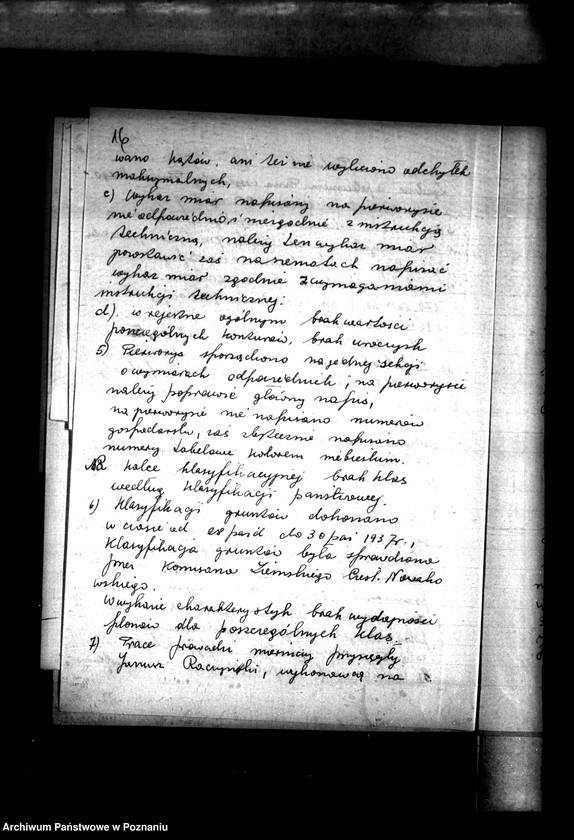 16
wano kątów, ani też nie wyliczono odchyłek
maksymalnych,
c) Wykaz miar napisany na pierworysie
nieodpowiednio i niezgodnie z instrukcją
techniczną, należy ten wykaz miar
powtórzyć zaś na nematach napisać
wykaz miar zgodnie z wymaganiami
instrukcji technicznej.
d). w rejestrze ogólnym brak wartości
poszczególnych konturów, brak
5) Pierworys sporządzono na jednej sekcji
o wymiarach odpowiednich, na pierworysie
należy poprawić główny napis,
na pierworysie nie napisano numerów
gospodarstw, zaś zbytecznie napisano
numery tabelowe kolorem niebieskim.
Na kalce klasyfikacyjnej brak klas
według klasyfikacji państwowej.
6) Klasyfikacji gruntów dokonano
w czasie od 28 paźd do 30 paź 1937r.,
Klasyfikacja gruntów była sprawdzona
przez Komisarza Ziemskiego Czesł. Nowako
wskiego.
W wykazie charakterystyk brak wydajności
plonów dla poszczególnych klas
7) Prace prowadzi mierniczy przysięgły
Janusz Raczyński, wykonawcą na
Archiwum Państwowe w Poznaniu